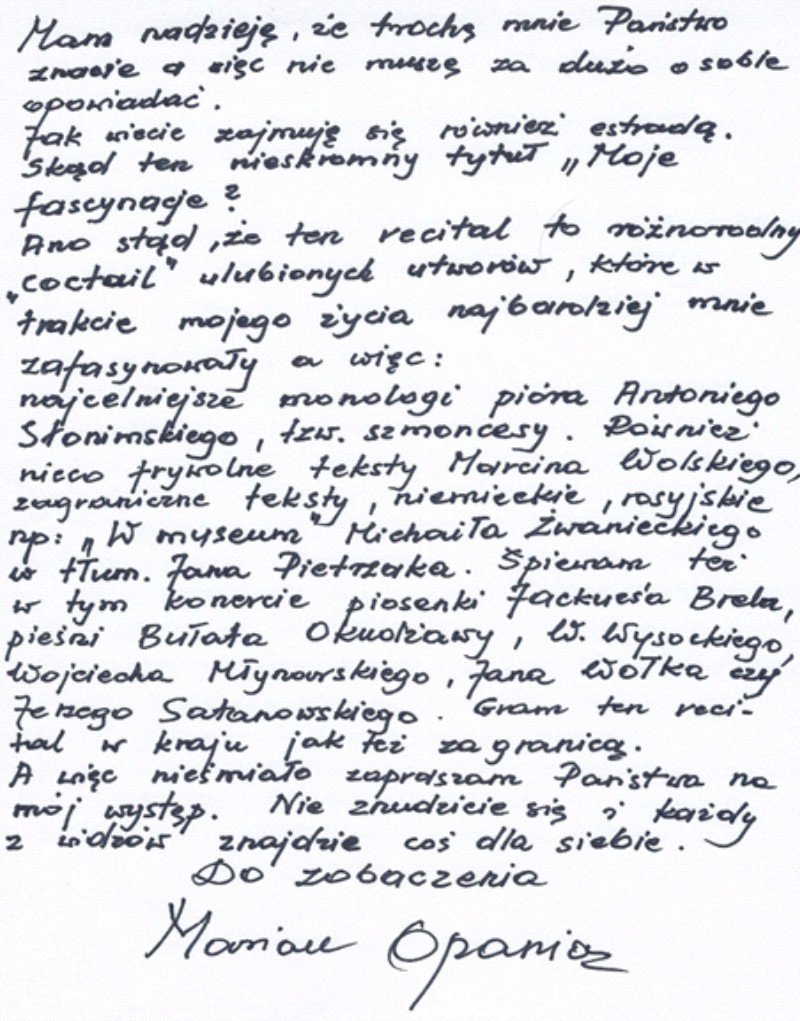 Mam nadzieję, że trochę mnie Państwo
znacie a więc nie muszę za dużo o sobie
opowiadać.
Jak wiecie zajmuję się również estradą.
Skąd ten nieskromny tytuł „Moje
fascynacje?
Ano stąd, że ten recital to różnorodny
„coctail" ulubionych utworów, które w
trakcie mojego życia najbardziej mnie
zafasynowały a więc:
najcelniejsze monologi pióra Antoniego
Słonimskiego, tzw. szmoncesy. Również
nieco frywolne teksty Marcina Wolskiego,
zagraniczne teksty, niemieckie, rosyjskie
np: „W museum" Michaiła Żwanieckiego
w tłum. Jana Pietrzaka. Śpiewam też
w tym koncercie piosenki Jackues'a Brela,
pieśni Bułata Okudżawy, W. Wysockiego,
Wojciecha Młynarskiego, Jana Wołka czy
Jerzego Satanowskiego. Gram ten reci-
tal w kraju jak też za granicą.
A więc nieśmiało zapraszam Państwa na
mój występ. Nie znudzicie się i każdy
z widzów znajdzie coś dla siebie.
Do zobaczenia
Marian Opania